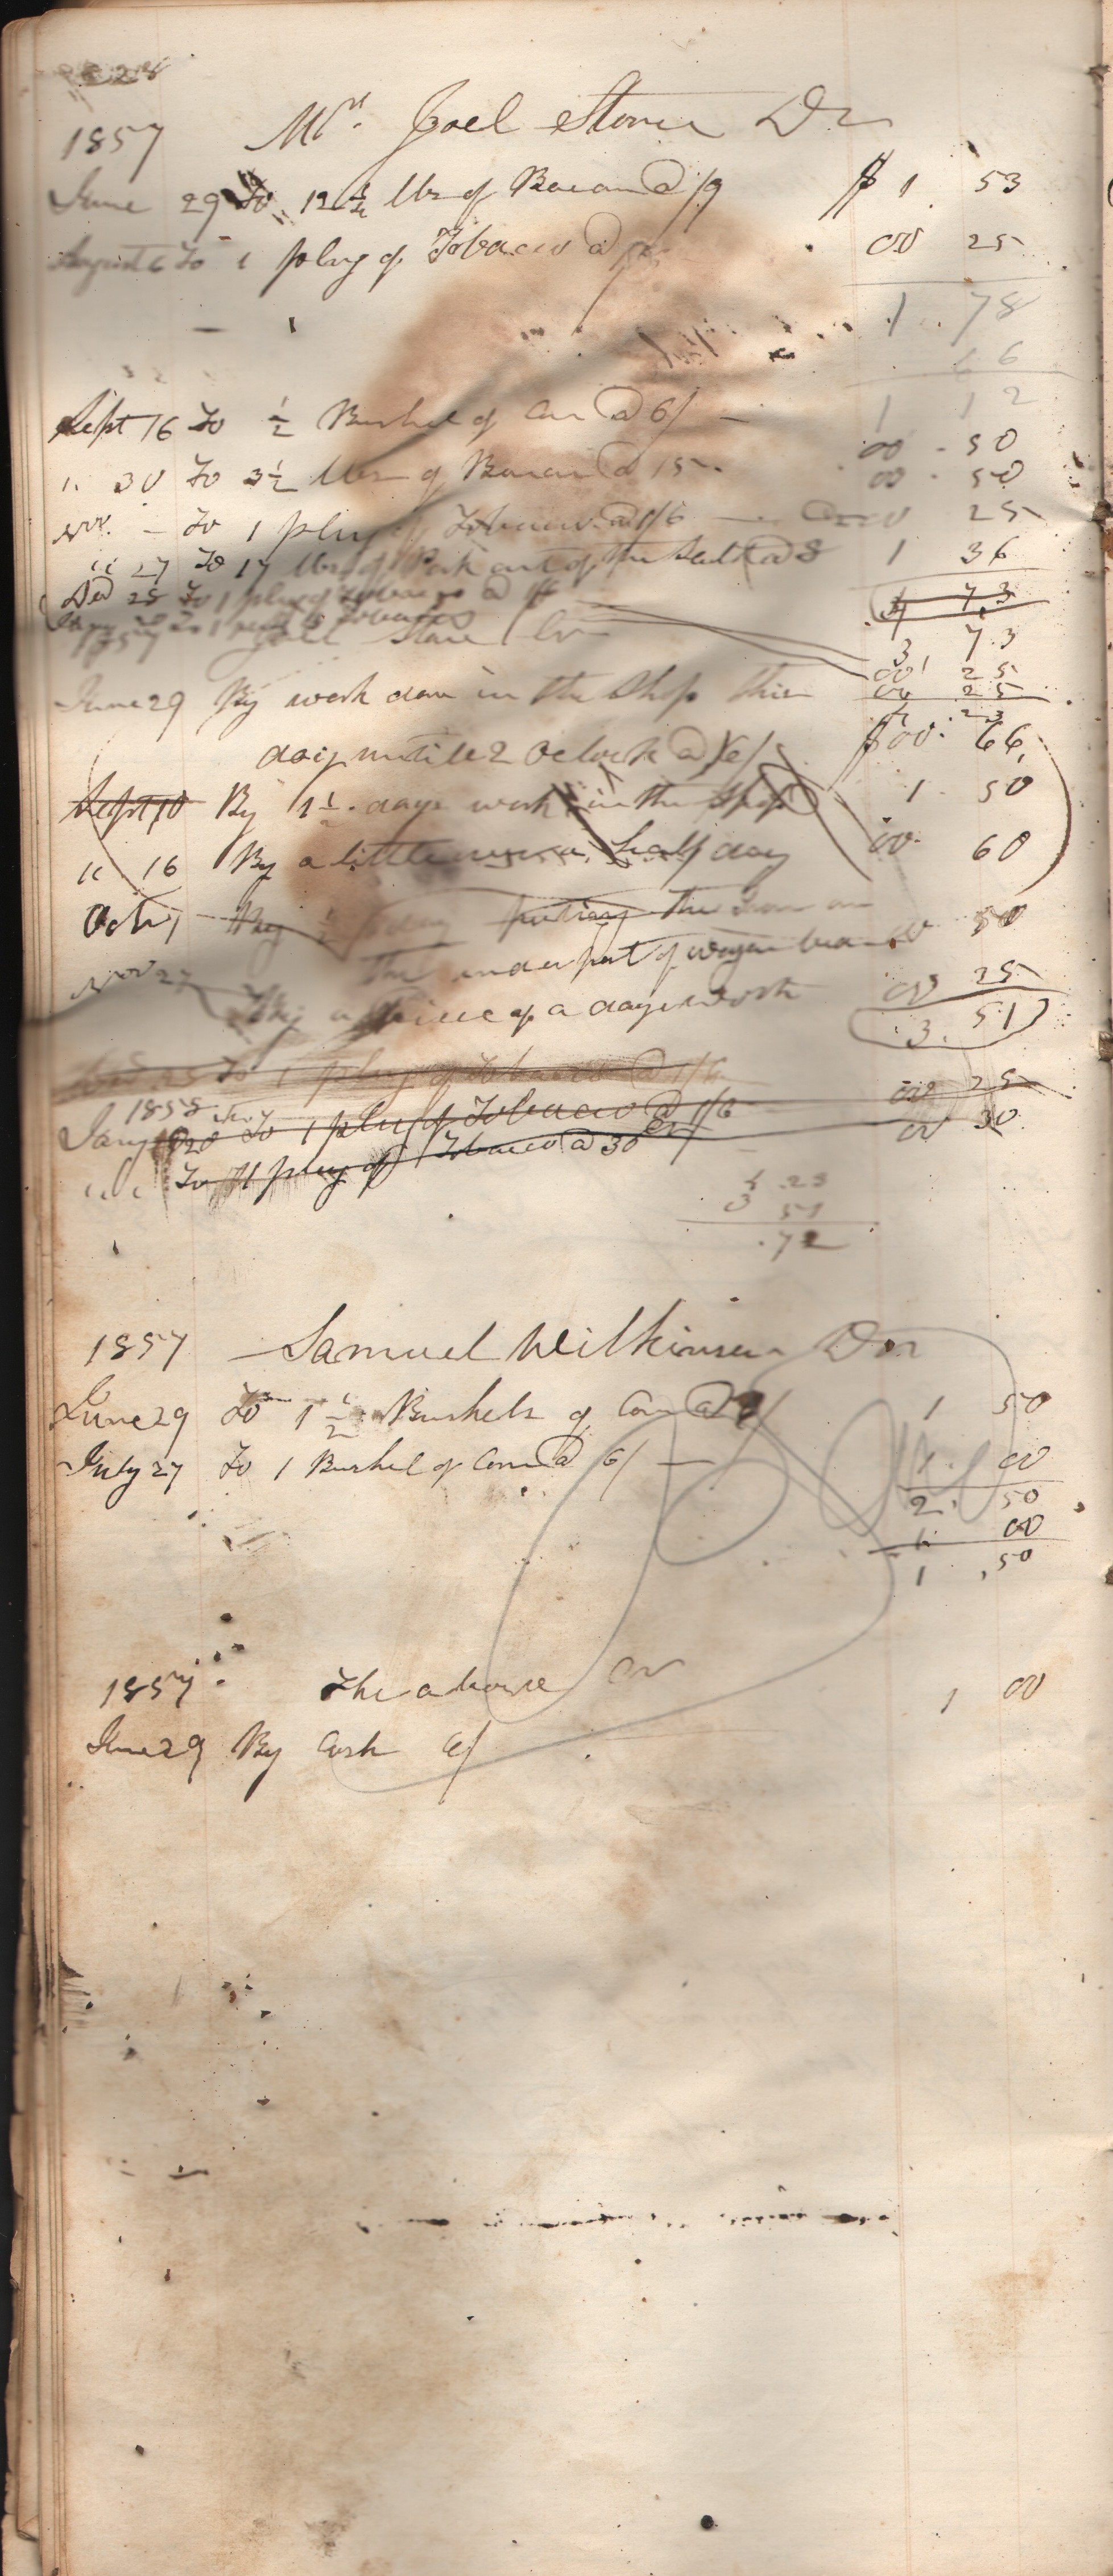 1857 Mr. Joel Stoner Dr
June 29 To 12 3/4 lbs of Bacon @ /9 $ 1 . 53
August 6 To 1 plug of Tobacco @ 00 25
1 . 78
66
1 12
Sept 16 To 1/2 Bushel of Corn @ 6/ — 00 - 50
" 30 To 3 1/2 lbs of Bacon @ 15 00 - 50
Nov. — To 1 plug of Tobacco @ 1/6 — 00 25
" 27 To 17 lbs of Pork out of the Salt @ 8 1 36
Dec 25 To 1 plug of Tobacco @ 1/6
73
3, 73
00 25
00 25
4 23
1857 Joel Stoner Cr
June 29 By work don in the Shop this
day until 2 Oclock @ 6/ $ 00. 66
Sept 10 By 1 1/2 days work in the Shop 1 - 50
" 16 By a little over a half day 00 60
Oct By the Iron on
the under part of wagon bed 00 50
Nov 27 By a piece of a days work 00 25
3. 51
To 1 plug of Tobacco @ 1/6
1858
Jany 20 To 1 plug of Tobacco @ 1/6 00 25
" " To 1 plug of Tobacco @ 30 00 30
4 .23
3 51
.72
1857 Samuel Wilkinson Dr
June 29 To 1 1/2 Bushels of Corn @ 6/ 1 50
July 27 To 1 Bushel of Corn @ 6/ — 1. 00
2. 50
1. 00
1 .50
1857 The above Cr
June 29 By Cash 6/ 1 00